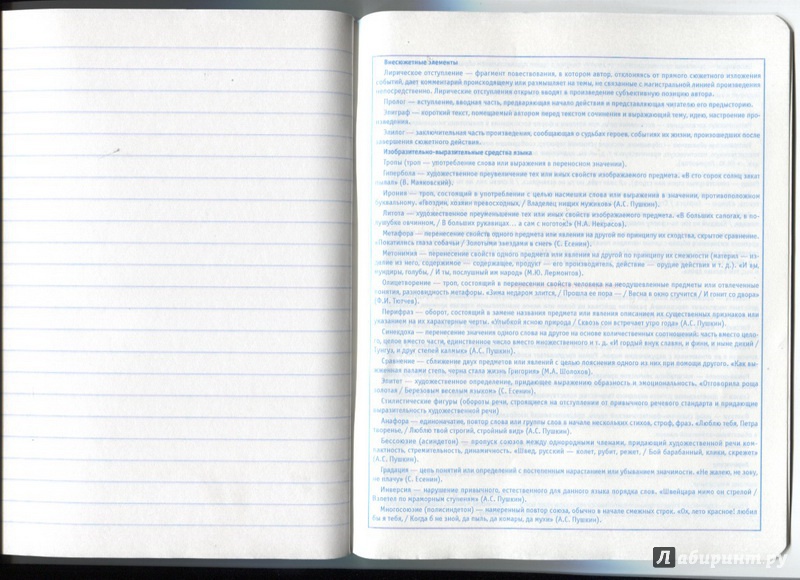 Внесюжетные элементы
Лирическое отступление — фрагмент повествования, в котором автор, отклоняясь от прямого сюжетного изложения
событий, дает комментарий происходящему или размышляет на темы, не связанные с магистральной линией произведения
непосредственно. Лирические отступления открыто вводят в произведение субъективную позицию автора.
Пролог — вступление, вводная часть, предваряющая начало действия и представляющая читателю его предысторию.
Эпиграф — короткий текст, помещаемый автором перед текстом сочинения и выражающий тему, идею, настроение про-
изведения.
Эпилог — заключительная часть произведения, сообщающая о судьбах героев, событиях их жизни, произошедших после
завершения сюжетного действия.
Изобразительно-выразительные средства языка
Тропы (троп — употребление слова или выражения в переносном значении).
Гипербола — художественное преувеличение тех или иных свойств изображаемого предмета. «В сто сорок солнц закат
пылал» (В. Маяковский).
Ирония — троп, состоящий в употреблении с целью насмешки слова или выражения в значении, противоположном
буквальному. «Гвоздин, хозяин превосходный, / Владелец нищих мужиков» (А.С. Пушкин).
Литота — художественное преуменьшение тех или иных свойств изображаемого предмета. «В больших сапогах, в по-
лушубке овчинном, / В больших рукавицах... а сам с ноготок!» (Н.А. Некрасов).
Метафора — перенесение свойств одного предмета или явления на другой по принципу их сходства, скрытое сравнение.
«Покатились глаза собачьи / Золотыми звездами в снег» (С. Есенин).
Метонимия — перенесение свойств одного предмета или явления на другой по принципу их смежности (материл — из-
делие из него, содержимое — содержащее, продукт — его производитель, действие — орудие действия и т. д.). «И вы,
мундиры, голубы, / И ты, послушный им народ» (М.Ю. Лермонтов).
Олицетворение — троп, состоящий в перенесении свойств человека на неодушевленные предметы или отвлеченные
понятия, разновидность метафоры. «Зима недаром злится, / Прошла ее пора — / Весна в окно стучится / И гонит со двора»
(Ф.И. Тютчев).
Перифраз — оборот, состоящий в замене названия предмета или явления описанием их существенных признаков или
указанием на их характерные черты. «Улыбкой ясною природа / Сквозь сон встречает утро года» (А.С. Пушкин).
Синекдоха — перенесение значения одного слова на другое на основе количественных соотношений: часть вместо цело-
го, целое вместо части, единственное число вместо множественного и т. д. «И гордый внук славян, и финн, и ныне дикий /
Тунгуз, и друг степей калмык» (А.С. Пушкин).
Сравнение — сближение двух предметов или явлений с целью пояснения одного из них при помощи другого. «Как вы-
жженная палами степь, черна стала жизнь Григория» (М.А. Шолохов).
Эпитет — художественное определение, придающее выражению образность и эмоциональность. «Отговорила роща
золотая / Березовым веселым языком» (С. Есенин).
Стилистические фигуры (обороты речи, строящиеся на отступлении от привычного речевого стандарта и придающие
выразительность художественной речи)
Анафора — единоначатие, повтор слова или группы слов в начале нескольких стихов, строф, фраз. «Люблю тебя, Петра
творенье, / Люблю твой строгий, стройный вид» (А.С. Пушкин).
Бессоюзие (асиндетон) — пропуск союзов между однородными членами, придающий художественной речи ком-
пактность, стремительность, динамичность. «Швед, русский — колет, рубит, режет. / Бой барабанный, клики, скрежет»
(А.С. Пушкин).
Градация — цепь понятий или определений с постепенным нарастанием или убыванием значимости. «Не жалею, не зову,
не плачу» (С. Есенин).
Инверсия — нарушение привычного, естественного для данного языка порядка слов. «Швейцара мимо он стрелой /
Взлетел по мраморным ступеням» (А.С. Пушкин).
Многосоюзие (полисиндетон) — намеренный повтор союза, обычно в начале смежных строк. «Ох, лето красное! любил
бы я тебя, / Когда б не зной, да пыль, да комары, да мухи» (А.С. Пушкин).
Лабиринт.ру